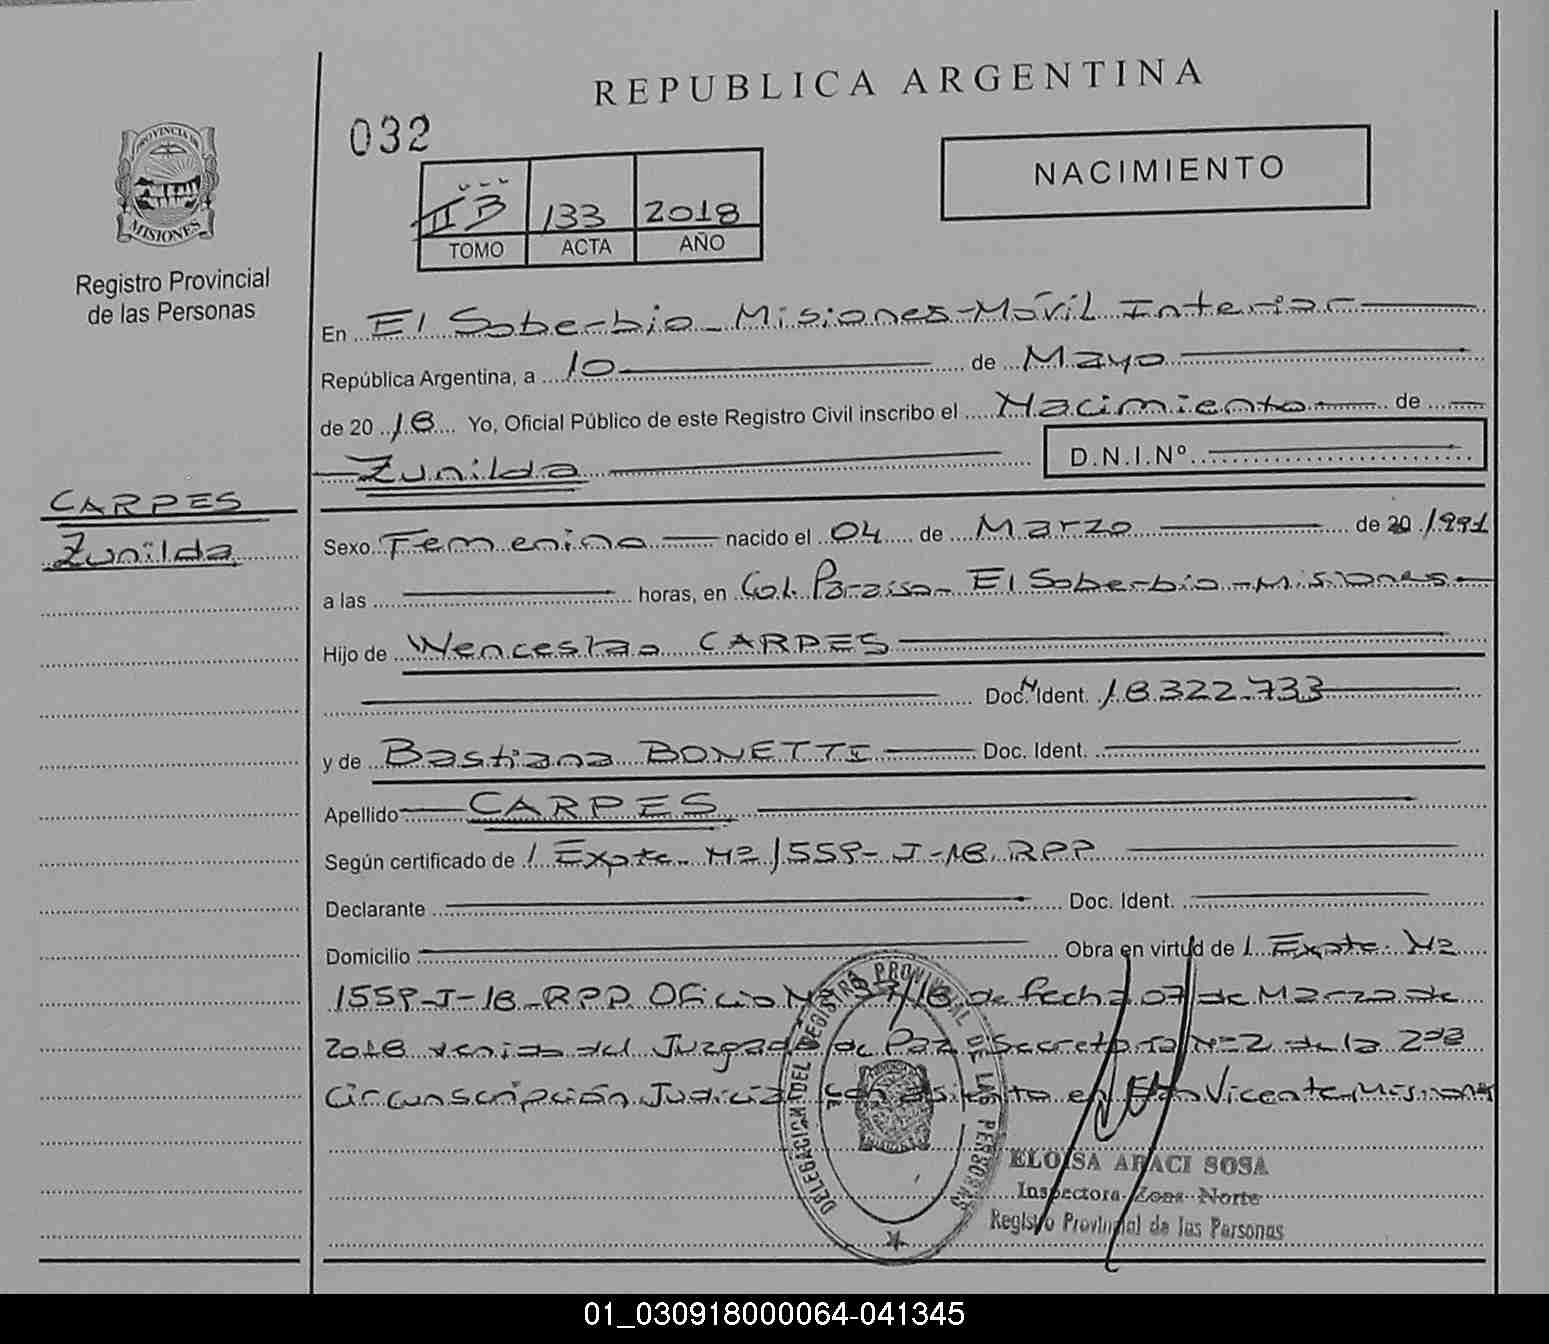 REPUBLICA ARGENTINA
032
PROVINCIA DE
MISIONES
NACIMIENTO
II B 133 2018
TOMO ACTA AÑO
Registro Provincial
de las Personas
En El Soberbio - Misiones - Móvil Interior
República Argentina, a 10 de Mayo
de 2018 Yo, Oficial Público de este Registro Civil inscribo el Nacimiento de
Zunilda D.N.I.Nº
CARPES
Zunilda
Sexo Femenino nacido el 04 de Marzo de 20 1991
a las horas, en Col. Paraiso - El Soberbio - Misiones -
Hijo de Wenceslao CARPES
Doc. N Ident. 18.322.733
y de Bastiana BONETTI Doc. Ident.
Apellido CARPES
Según certificado de 1 Expte. Nº 1559-I-18 RPP
Declarante Doc. Ident.
Domicilio Obra en virtud de 1 Expte. Nº
1559-I-18-RPP Oficio Nº 57/18 de fecha 07 de Marzo de
2018 venido del Juzgado de Paz Secretaria Nº 2 de la 2da
Circunscripción Judicial con asiento en San Vicente Misiones
DELEGACION DEL REGISTRO PROVINCIAL DE LAS PERSONAS
ELOISA ARACI SOSA
Inspectora Zona Norte
Registro Provincial de las Personas
01_030918000064-041345